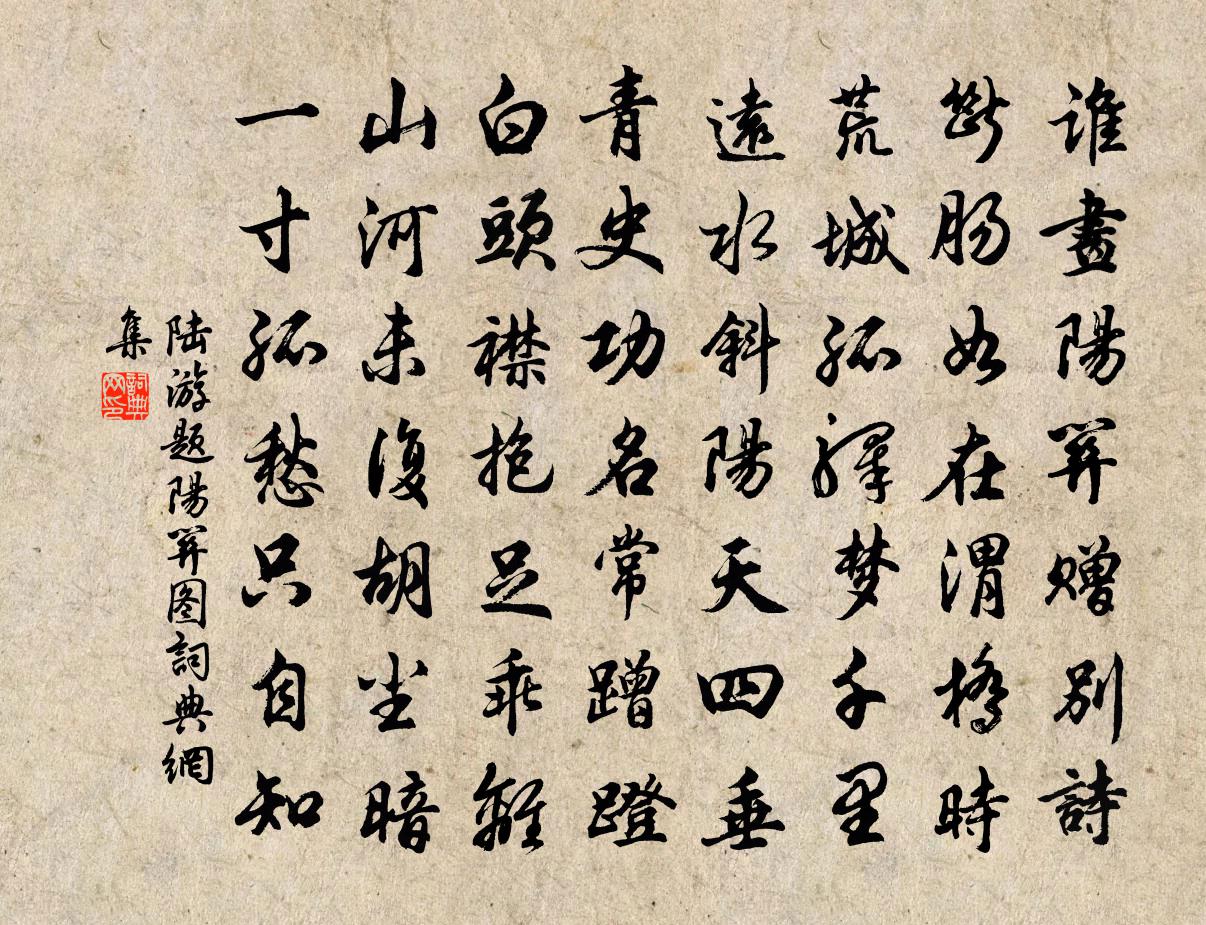 誰畫陽關贈別詩
斷腸如在渭橋時
荒城孤驛夢千里
遠水斜陽天四垂
青史功名常蹭蹬
白頭襟抱足乖離
山河未復胡塵暗
一寸孤愁只自知
陸游题陽關图詞典網
集
詞典网印